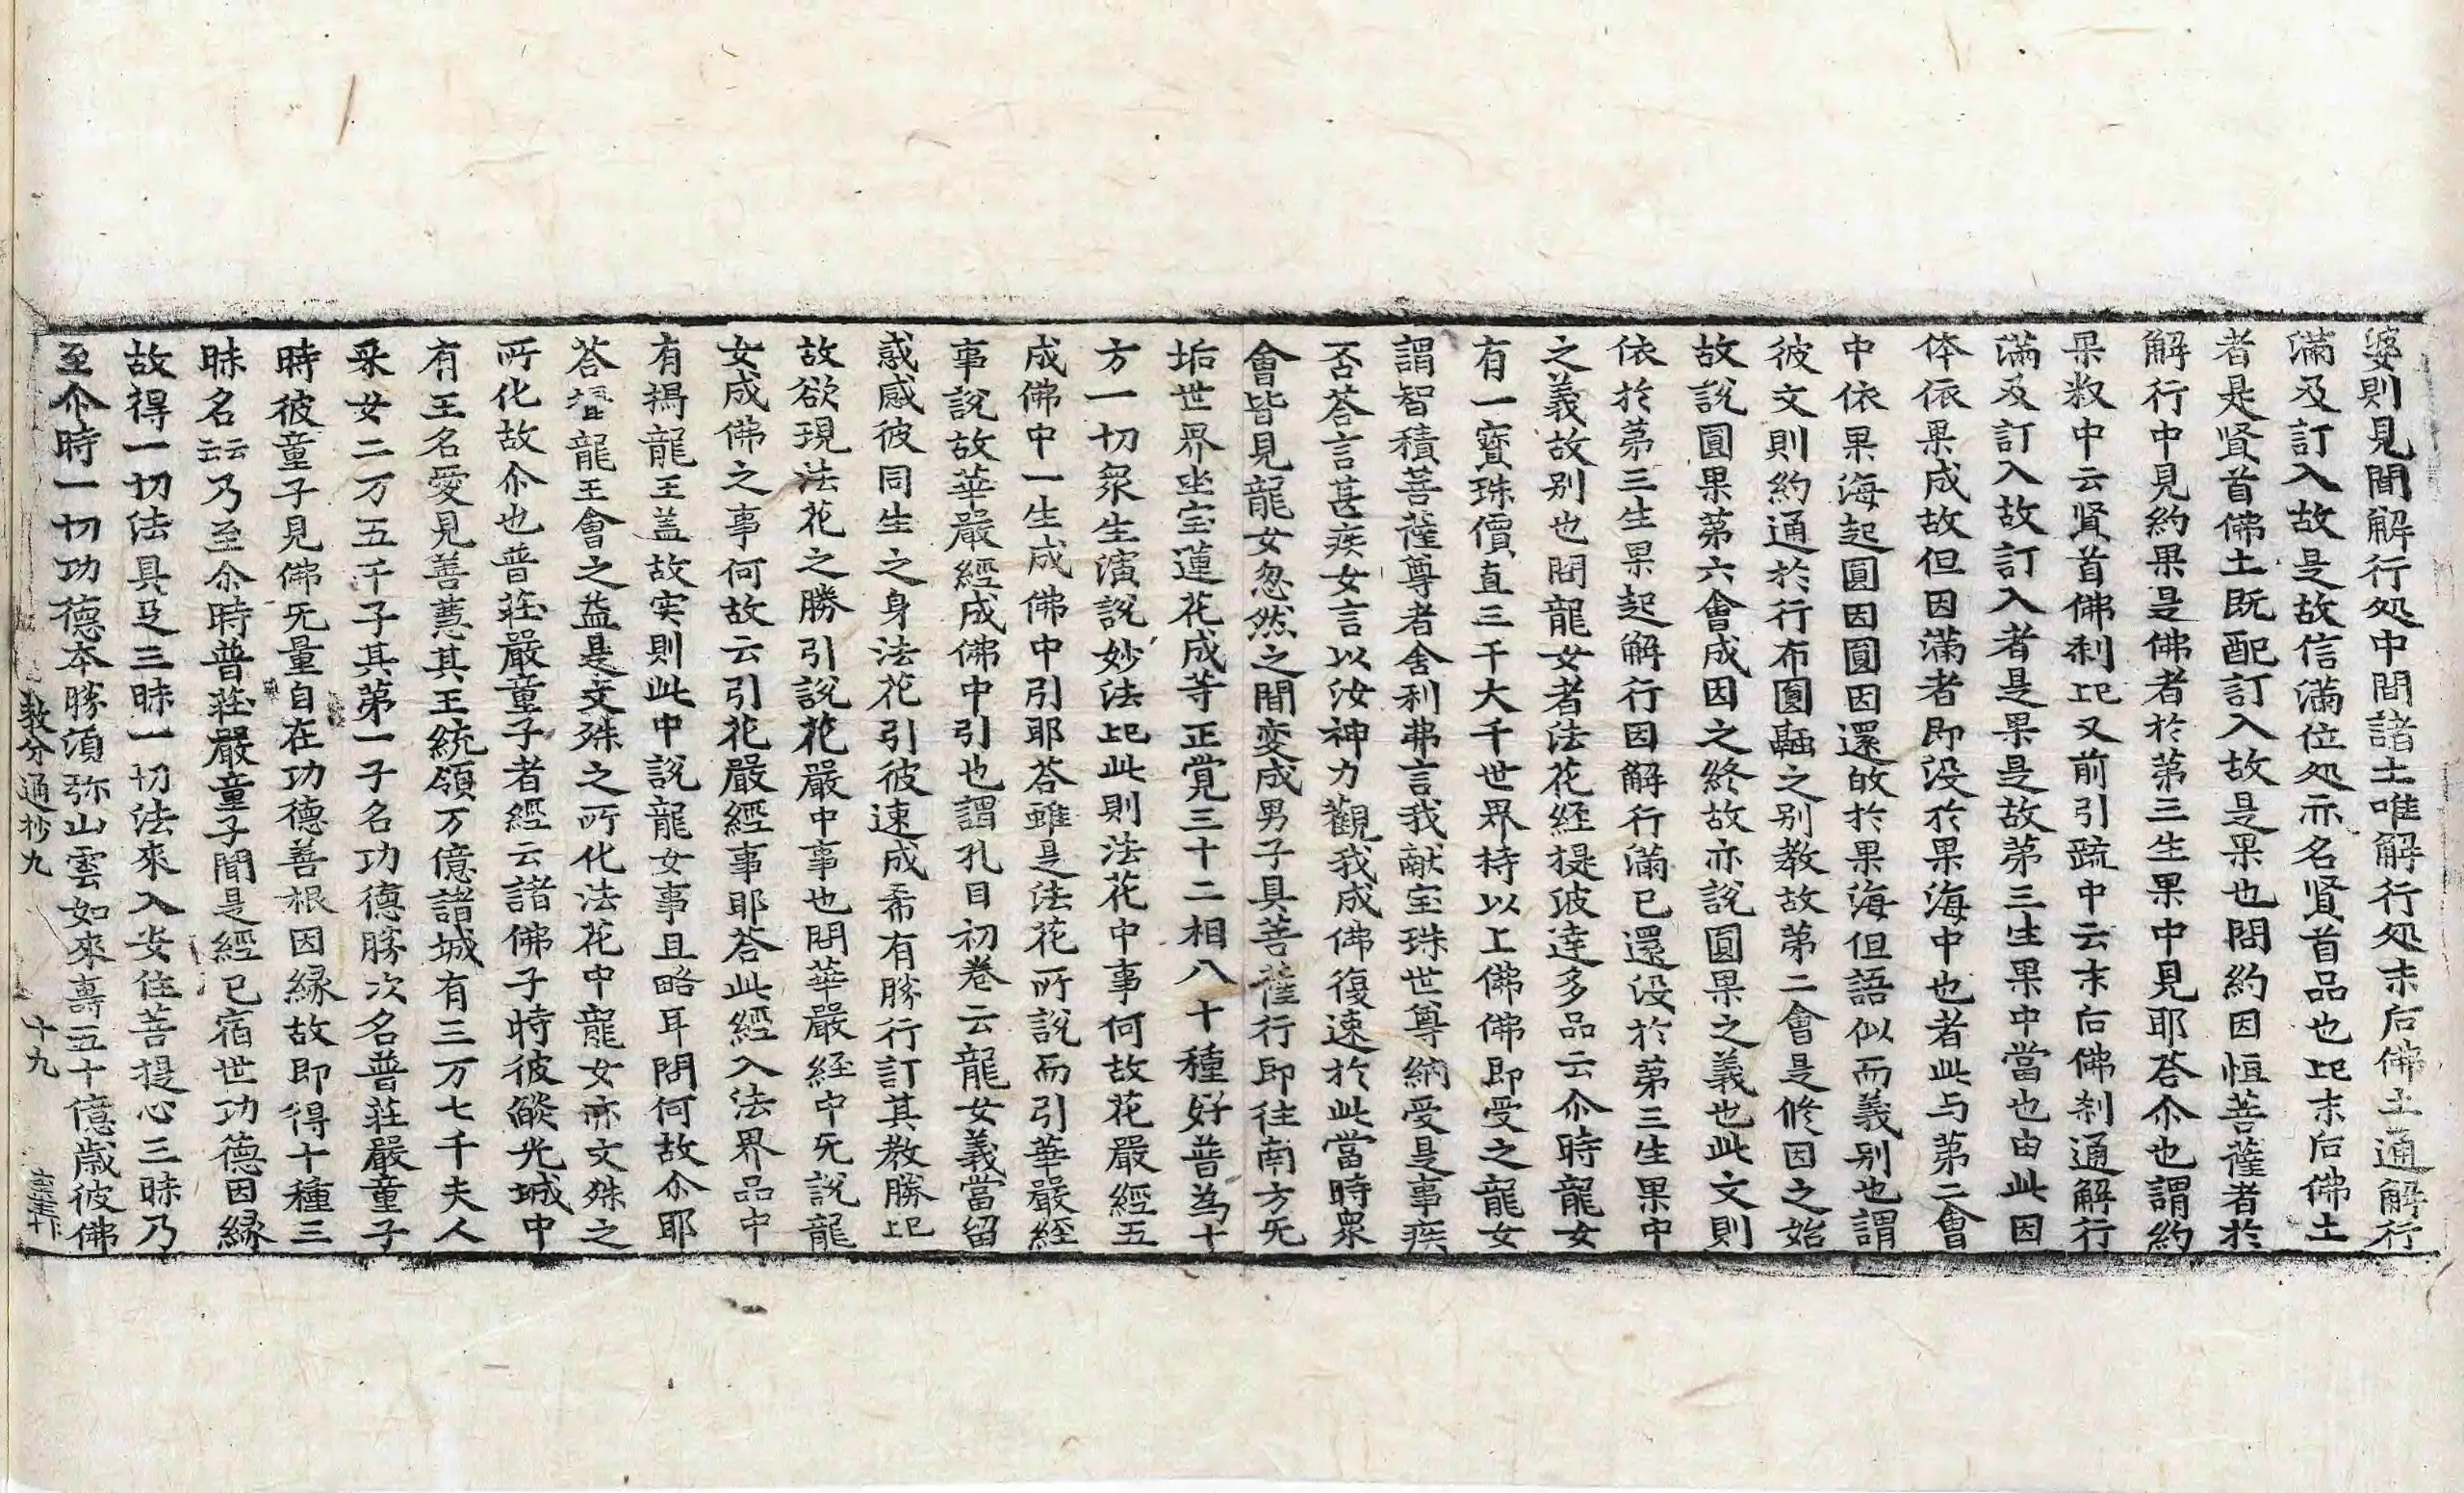 婆則見聞解行处中間諸土唯解行处末后佛土通解行
滿及訂入故是故信滿位处示名贤首品也比末后佛土
者是贤首佛土既配訂入故是果也問約因恒菩薩者於
解行中見約果是佛者於苐三生果中見耶荅尒也謂約
果叙中云贤首佛刹比又前引疏中云末后佛刹通解行
滿及訂入故訂入者是果是故苐三生果中當也由此因
体依果成故但因滿者即没於果海中也者此与苐二會
中依果海起圓因圓因還㪽於果海但語似而義别也謂
彼文則約通於行布圓融之别教故苐二會是修因之始
故說圓果苐六會成因之終故亦說圓果之義也此文則
依於苐三生果起解行因解行滿已還没於苐三生果中
之義故别也問龍女者法花经提波達多品云尒時龍女
有一寳珠價直三千大千世界持以上佛佛即受之龍女
謂智積菩薩尊者舍利弗言我献宝珠世尊納受是事疾
否荅言甚疾女言以汝神力觀我成佛復速於此當時衆
會皆見龍女忽然之間变成男子具菩薩行即往南方旡
垢世界坐宝蓮花成等正覚三十二相八十種好普為十
方一切衆生演說妙法比此則法花中事何故花嚴經五
成佛中一生成佛中引耶荅雖是法花所說而引華嚴經
事說故華嚴經成佛中引也謂孔目初卷云龍女義當留
惑感彼同生之身法花引彼速成希有勝行訂其教勝比
故欲現法花之勝引說花嚴中事也問華嚴経中旡說龍
女成佛之事何故云引花嚴經事耶荅此經入法界品中
有揭龍王盖故实則此中說龍女事且略耳問何故尒耶
荅龍王會之益是文殊之所化法花中龍女亦文殊之
所化故尒也普莊嚴童子者經云諸佛子時彼燄光城中
有王名愛見善慧其王統領万億諸城有三万七千夫人
采女二万五千子其苐一子名功德勝次名普莊嚴童子
時彼童子見佛旡量自在功德善根因縁故即得十種三
昧名云云乃至尒時普莊嚴童子聞是經已宿世功德因縁
故得一切法具足三昧一切法來入安住菩提心三昧乃
至尒時一切功德本勝須弥山雲如來壽五十億歳彼佛
教分通抄九 十九